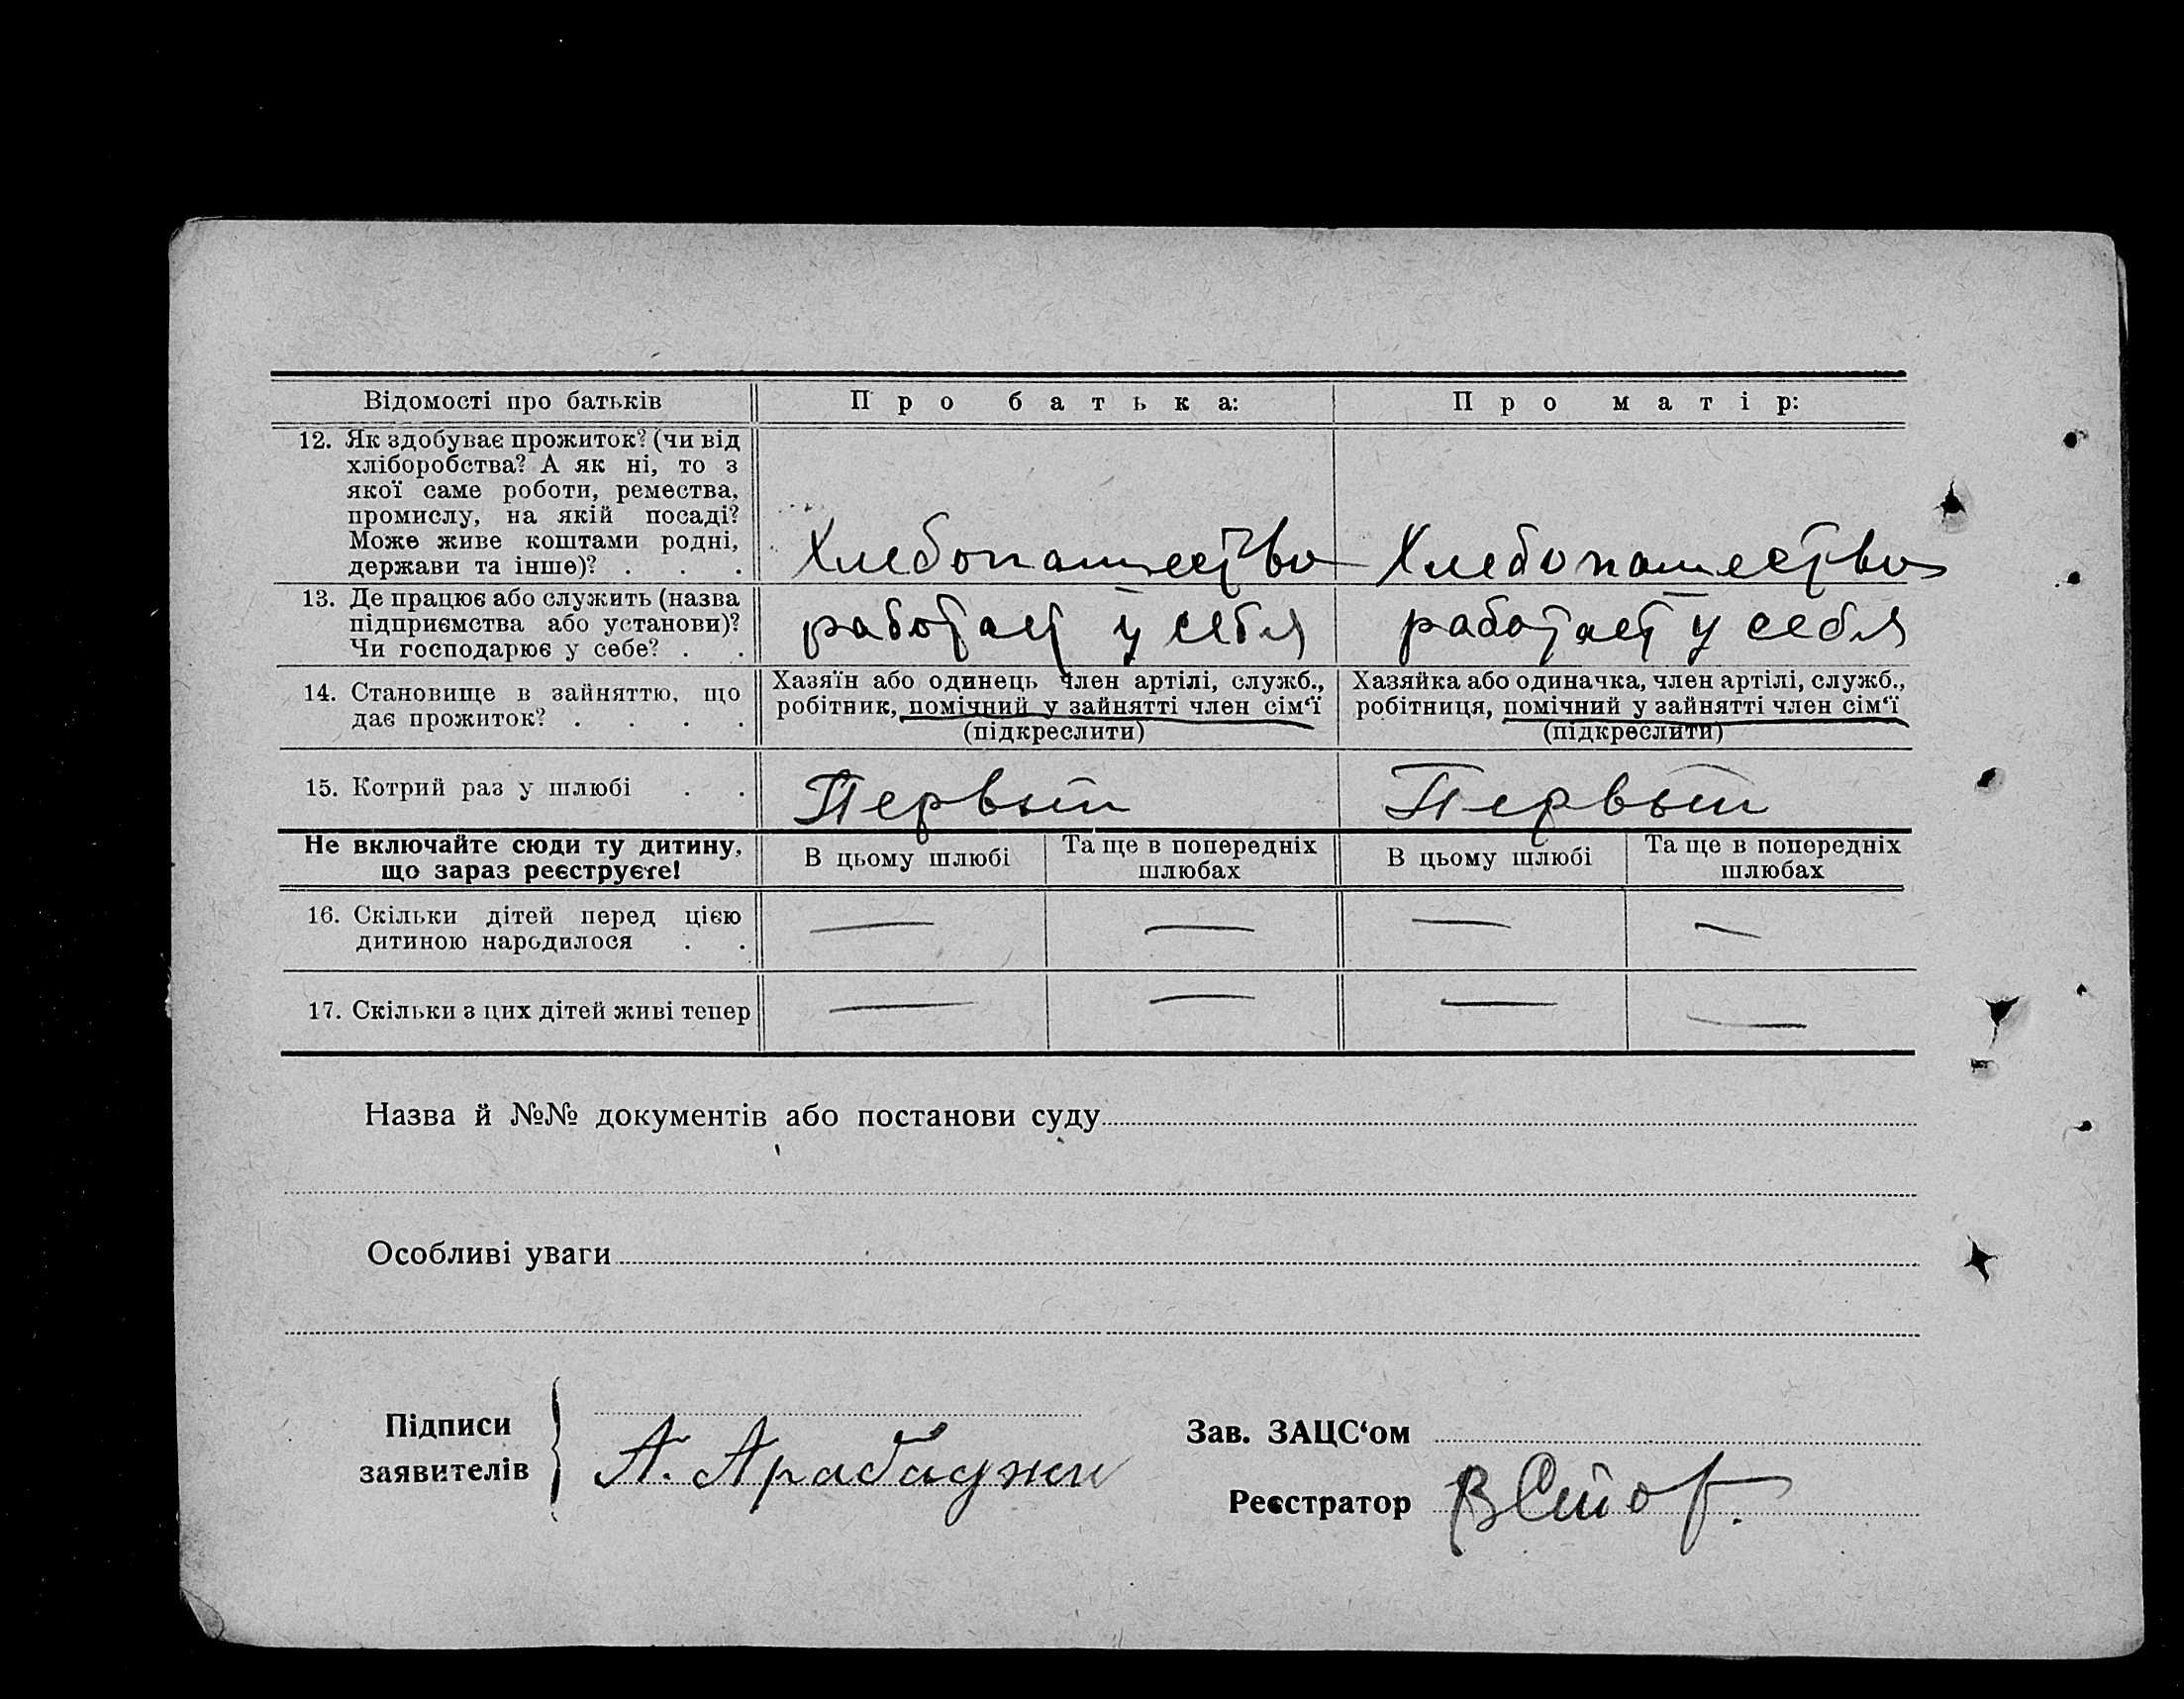 Відомості про батьків
Про батька:
Про матір:
12. Як здобуває прожиток? (чи від
хліборобства? А як ні, то з
якої саме роботи, ремества,
промислу, на якій посаді?
Може живе коштами родні,
держави та інше)? . . .
Хлебопашество
Хлебопашество
13. Де працює або служить (назва
підприємства або установи)?
Чи господарює у себе? . .
работает у себя
работает у себя
14. Становище в зайняттю, що
дає прожиток? . . . .
Хазяїн або одинець член артілі, служб.,
робітник, помічний у зайнятті член сім‘ї
(підкреслити)
Хазяйка або одиначка, член артілі, служб.,
робітниця, помічний у зайнятті член сім‘ї
(підкреслити)
15. Котрий раз у шлюбі . .
Первый
Первый
Не включайте сюди ту дитину,
що зараз реєструєте!
В цьому шлюбі
Та ще в попередніх
шлюбах
В цьому шлюбі
Та ще в попередніх
шлюбах
16. Скільки дітей перед цією
дитиною народилося . .
— — — —
17. Скільки з цих дітей живі тепер
— — — —
Назва й №№ документів або постанови суду
Особливі уваги
Підписи
заявителів
А. Арабаджи
Зав. ЗАЦС‘ом
Реєстратор